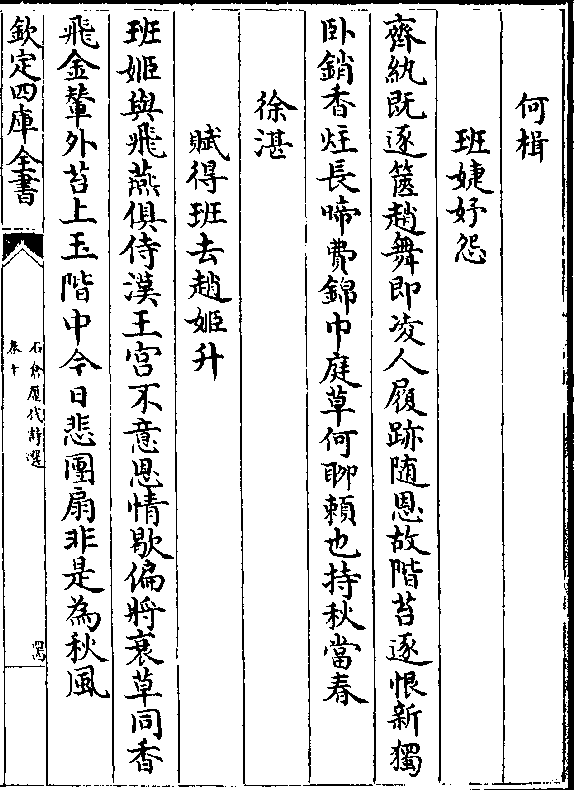 何楫
班婕妤怨
齊紈既逐篋趙舞即凌人履跡随恩故階苔逐恨新獨
卧銷香炷長啼費錦巾庭草何聊賴也持秋當春
徐湛
賦得班去趙姬升
班姬與飛燕俱侍漢王宮不意恩情歇偏將衰草同香
飛金輦外苔上玉階中今日悲團扇非是為秋風
欽定四庫全書
石倉歷代詩選
卷十